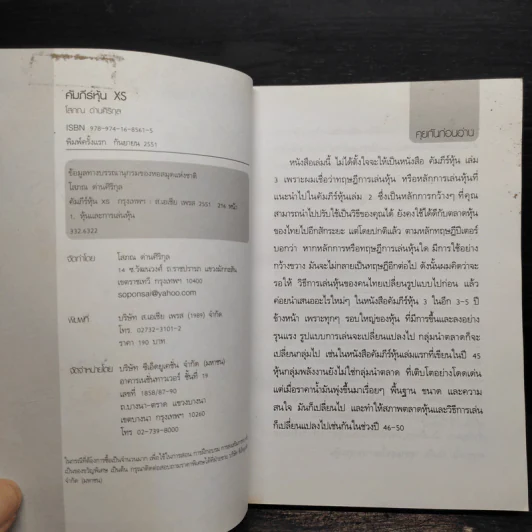 คัมภีร์หุ้น XS
โสภณ ด่านศิริกุล
ISBN 978-974-16-8561-5
พิมพ์ครั้งแรก กันยายน 2551
ข้อมูลทางบรรณานุกรมของหอสมุดแห่งชาติ
โสภณ ด่านศิริกุล
คัมภีร์หุ้น XS กรุงเทพฯ : ส.เอเซีย เพรส 2551 256 หน้า
1. หุ้นและการเล่นหุ้น
332.6322
จัดทำโดย โสภณ ด่านศิริกุล
14 ซ.วัฒนวงศ์ ถ.ราชปรารภ แขวงมักกะสัน
เขตราชเทวี กรุงเทพฯ 10400
soponsai@yahoo.com
พิมพ์ที่ บริษัท ส.เอเซีย เพรส (1989) จำกัด
โทร. 02-732-3101-2
ราคา 190 บาท
จัดจำหน่ายโดย บริษัท ซีเอ็ดยูเคชั่น จำกัด (มหาชน)
อาคารเนชั่นทาวเวอร์ ชั้นที่ 19
เลขที่ 1858/87-90
ถ.บางนา-ตราด แขวงบางนา
เขตบางนา กรุงเทพฯ 10260
โทร 02-739-8000
ในกรณีที่ต้องการซื้อเป็นจำนวนมาก เพื่อใช้ในการสอน การฝึกอบรม
เป็นของขวัญพิเศษ เป็นต้น กรุณาติดต่อสอบถามราคาพิเศษได้ที่
จำกัด (มหาชน)
คุยกันก่อนอ่าน
หนังสือเล่มนี้ ไม่ได้ตั้งใจจะให้เป็นหนังสือ คัมภีร์หุ้น เล่ม
3 เพราะผมเชื่อว่าทฤษฎีการเล่นหุ้น หรือหลักการเล่นหุ้นที่
แนะนำไปในคัมภีร์หุ้นเล่ม 2 ซึ่งเป็นหลักการกว้างๆ ที่คุณ
สามารถนำไปปรับใช้เป็นวิธีของคุณได้ ยังคงใช้ได้ดีกับตลาดหุ้น
ของไทยไปอีกสักระยะ แต่โดยปกติแล้ว ตามหลักทฤษฎีปีเตอร์
บอกว่า หากหลักการหรือทฤษฎีการเล่นหุ้นใด มีการใช้อย่าง
กว้างขวาง มันจะไม่กลายเป็นทฤษฎีอีกต่อไป ดังนั้นผมคิดว่าจะ
รอให้ วิธีการเล่นหุ้นของคนไทยเปลี่ยนรูปแบบไปก่อน แล้ว
ค่อยนำเสนออะไรใหม่ๆ ในหนังสือคัมภีร์หุ้น 3 ในอีก 3-5 ปี
ข้างหน้า เพราะทุกๆ รอบใหญ่ของหุ้น ที่มีการขึ้นและลงอย่าง
รุนแรง รูปแบบการเล่นจะเปลี่ยนแปลงไป กลุ่มนำตลาดก็จะ
เปลี่ยนกลุ่มไป เช่นในหนังสือคัมภีร์หุ้นเล่มแรกที่เขียนในปี 45
หุ้นกลุ่มพลังงานยังไม่ใช่กลุ่มนำตลาด ที่เติบโตอย่างโดดเด่น
แต่เมื่อราคาน้ำมันพุ่งขึ้นมาเรื่อยๆ พื้นฐาน ขนาด และความ
สนใจ มันก็เปลี่ยนไป และทำให้สภาพตลาดหุ้นและวิธีการเล่น
ก็เปลี่ยนแปลงไปเช่นกันในช่วงปี 46-50